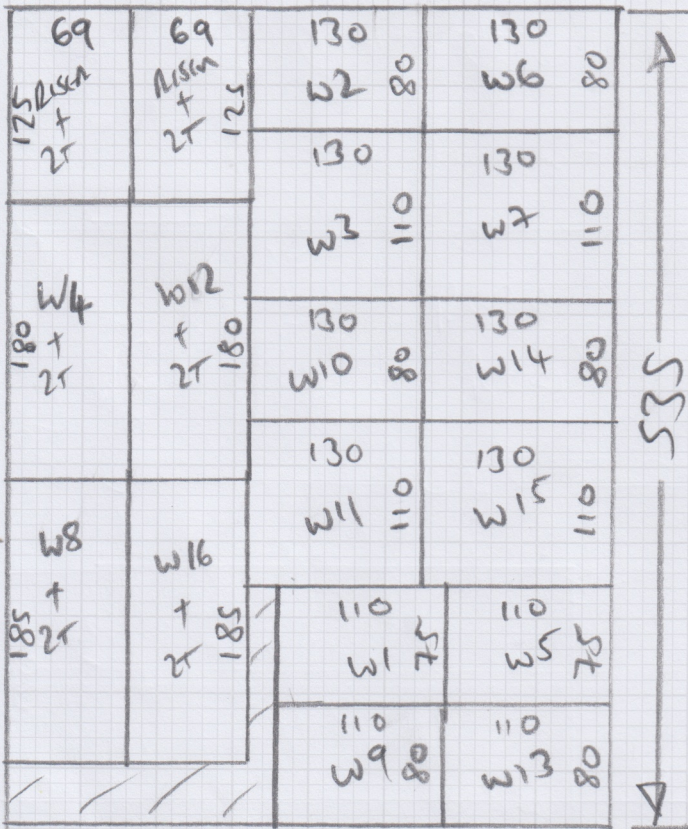 69
125
Riser
+
2T
69
Riser
+
2T
125
130
W2 80
130
W6 80
130
W3 110
130
W7 110
W4
180 +
2T
W12
+
2T 180
130
W10 80
130
W14 80
130
W11 110
130
W15 110
535
W8
+
185 2T
W16
+
2T 185
110
W1 75
110
W5 75
110
W9 80
110
W13 80